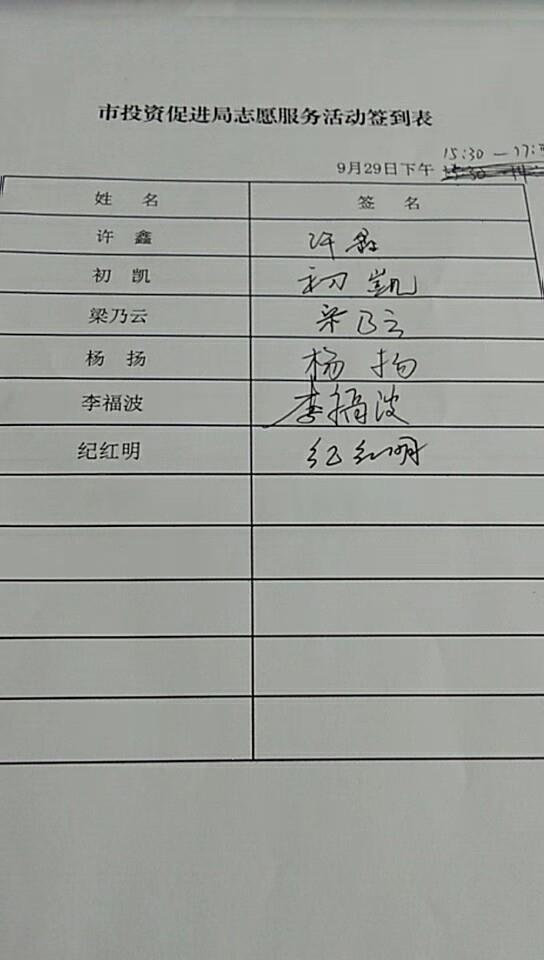 市投资促进局志愿服务活动签到表
15:30 — 17:
9月29日下午
姓 名 签 名
许 鑫 许鑫
初 凯 初凯
梁乃云 梁乃云
杨 扬 杨扬
李福波 李福波
纪红明 纪红明